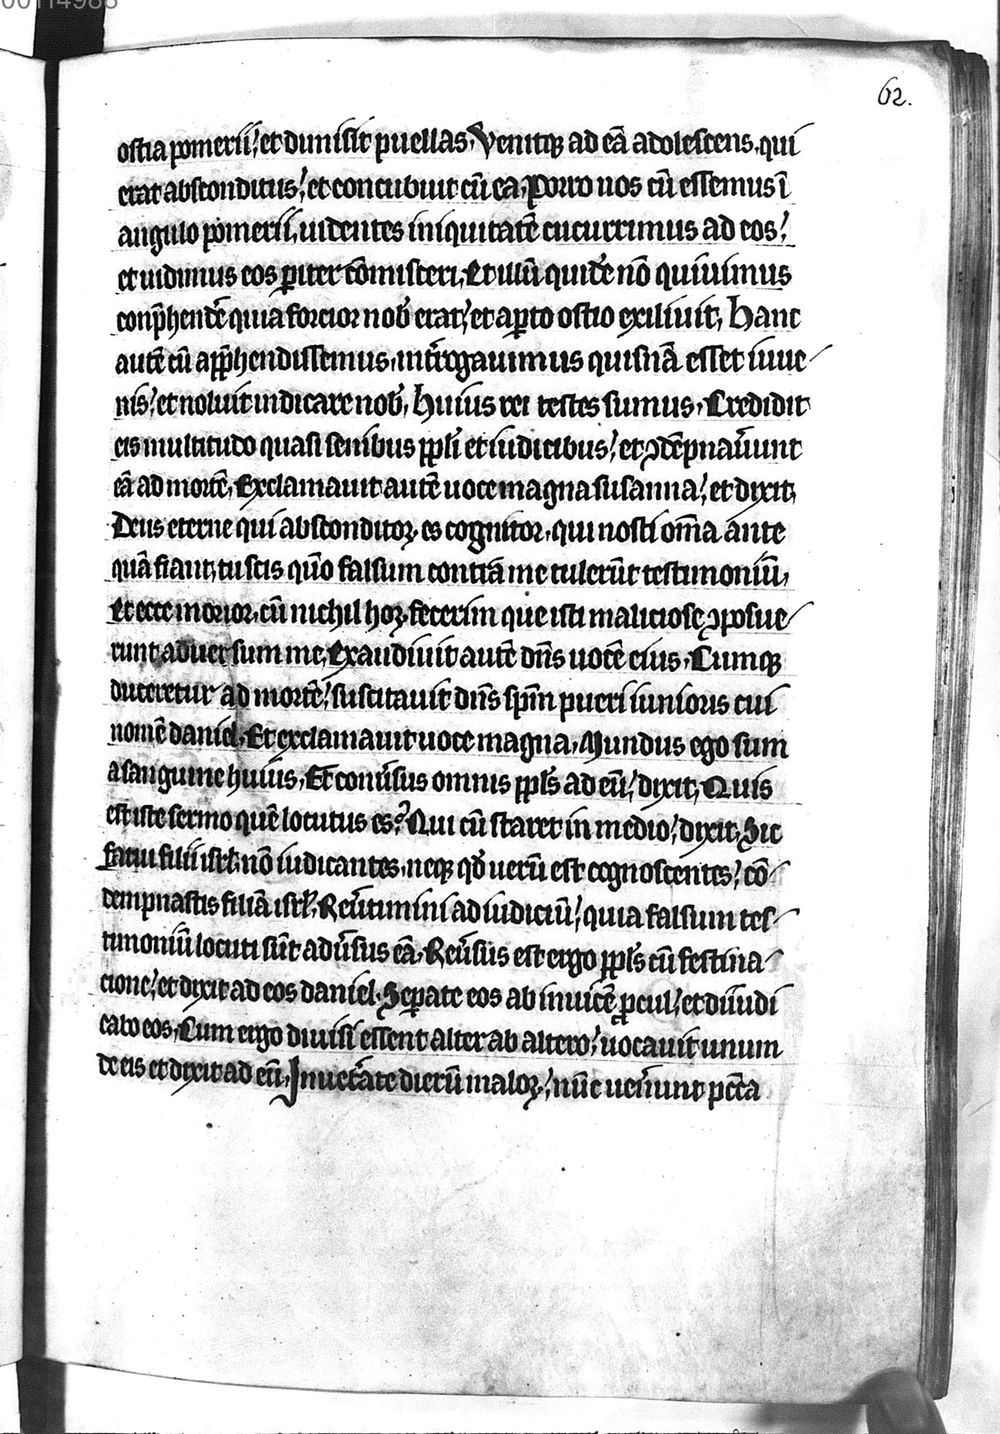 00114988
62.
ostia pomerii, et dimisit puellas, Venitqꝫ ad eā adolescens, qui
erat absconditus, et concubuit cū ea, Porro nos cū essemus ī
angulo pomerii, uidentes iniquitatē cucurrimus ad eos,
et uidimus eos ꝑiter cōmisceri, Et illū quidē nō quiuimus
conp̄hendē quia forcior nob̄ erat, et aꝑto ostio exiliuit, Hanc
autē cū app̄hendissemus, int̄rogauimus quisnā esset iuue-
nis, et noluit indicare nob̄, Huius rei testes sumus, Credidit
eis multitudo quasi senibus ppl̄i et iudicibus, et ꝯdēpnau̅unt
eā ad mortē, Exclamauit autē uoce magna susanna, et dixit,
Deus eterne qui absconditoꝝ es cognitor, qui nosti om̄a ante
quā fiant, tu scis qūo falsum contrā me tulerūt testimoniū,
Et ecce morior, cū nichil hoꝝ fecerim que isti maliciose ꝯposue-
runt aduersum me, Exaudiuit autē dn̄s uocē eius, Cumqꝫ
duceretur ad mortē, suscitauit dn̄s sp̄m pueri iunioris cui
nomē daniel, Et exclamauit uoce magna, Mundus ego sum
a sanguine huius, Et conu̅sus omnis ppl̄s ad eū, dixit, Quis
est iste sermo quē locutus es? Qui cū staret in medio, dixit, Sic
fatui filii isrl̄, nō iudicantes, neqꝫ qd̄ uerū est cognoscentes, cō-
dempnastis filiā isrl̄, Reu̅timini ad iudiciū, quia falsum tes-
timoniū locuti sūt adu̅sus eā, Reu̅sus est ergo ppl̄s cū festina-
cione, et dixit ad eos daniel, Seꝑate eos ab inuicē ꝓcul, et diiudi
cabo eos, Cum ergo diuisi essent alter ab altero, uocauit unum
de eis et dixit ad eū, Inuet̄ate dierū maloꝝ, nūc uen̄unt pcc̄a